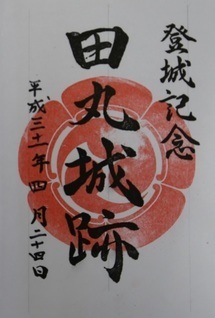 登城記念
田丸城跡
平成三十一年四月二十四日